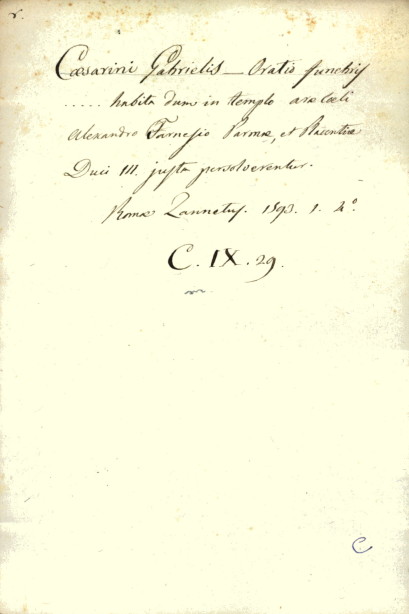 r.
Cæsarini Gabrielis — Oratio funebris
..... habita dum in templo aræ Cœli
Alexandro Farnesio Parmæ, et Placentiæ
Duci III. justa persolverentur.
Romæ Zannetus. 1593. 1. 4°.
C. IX. 29.
C